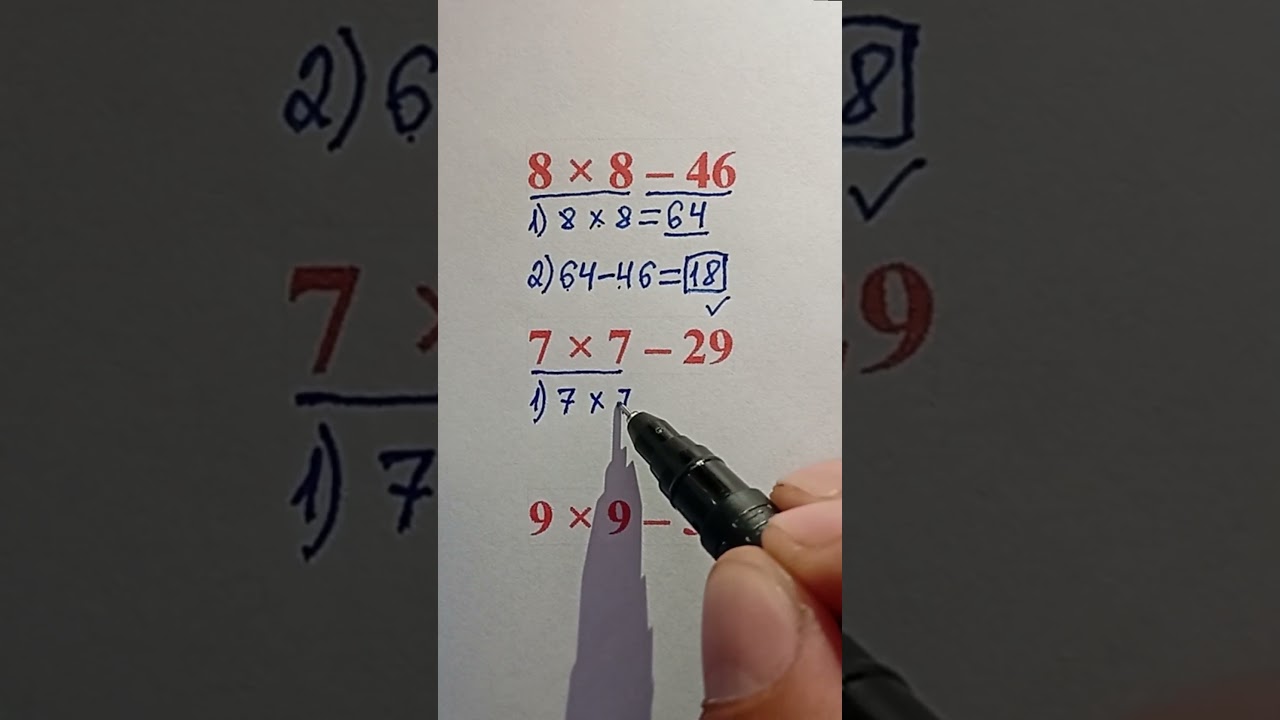 8 × 8 – 46
1) 8 × 8 = 64
2) 64 – 46 = 18
✓
7 × 7 – 29
1) 7 × 7
9 × 9 –